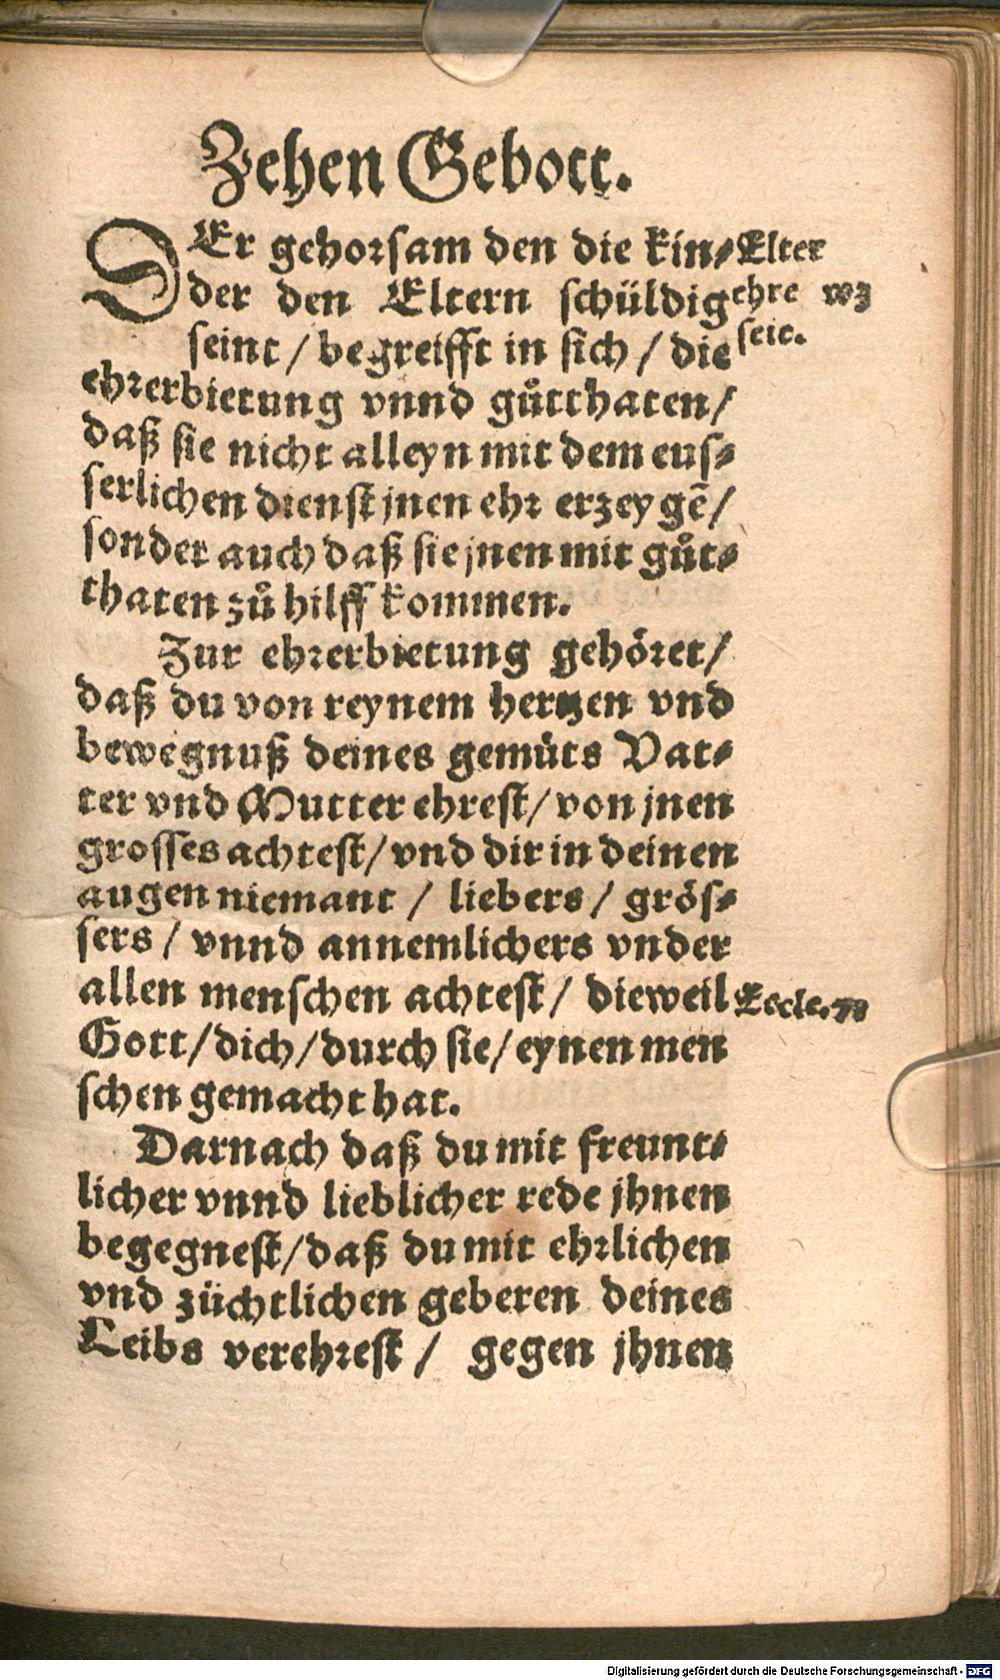 Zehen Gebott.
DEr gehorsam den die kin⸗
der den Eltern schüldig
seint / begreifft in sich / die
ehrerbietung vnnd gůtthaten /
daß sie nicht alleyn mit dem eus⸗
serlichen dienst jnen ehr erzeygē /
sonder auch daß sie jnen mit gůt⸗
thaten zů hilff kommen.
Zur ehrerbietung gehöret /
daß du von reynem hertzen vnd
bewegnuß deines gemüts Vat⸗
ter vnd Mutter ehrest / von jnen
grosses achtest / vnd dir in deinen
augen niemant / liebers / grös⸗
sers / vnnd annemlichers vnder
allen menschen achtest / dieweil
Gott / dich / durch sie / eynen men
schen gemacht hat.
Darnach daß du mit freunt⸗
licher vnnd lieblicher rede jhnen
begegnest / daß du mit ehrlichen
vnd züchtlichen geberen deines
Leibs verehrest / gegen jhnen
Elter
ehre wz
seie.
Eccle. 7
Digitalisierung gefördert durch die Deutsche Forschungsgemeinschaft - DFG